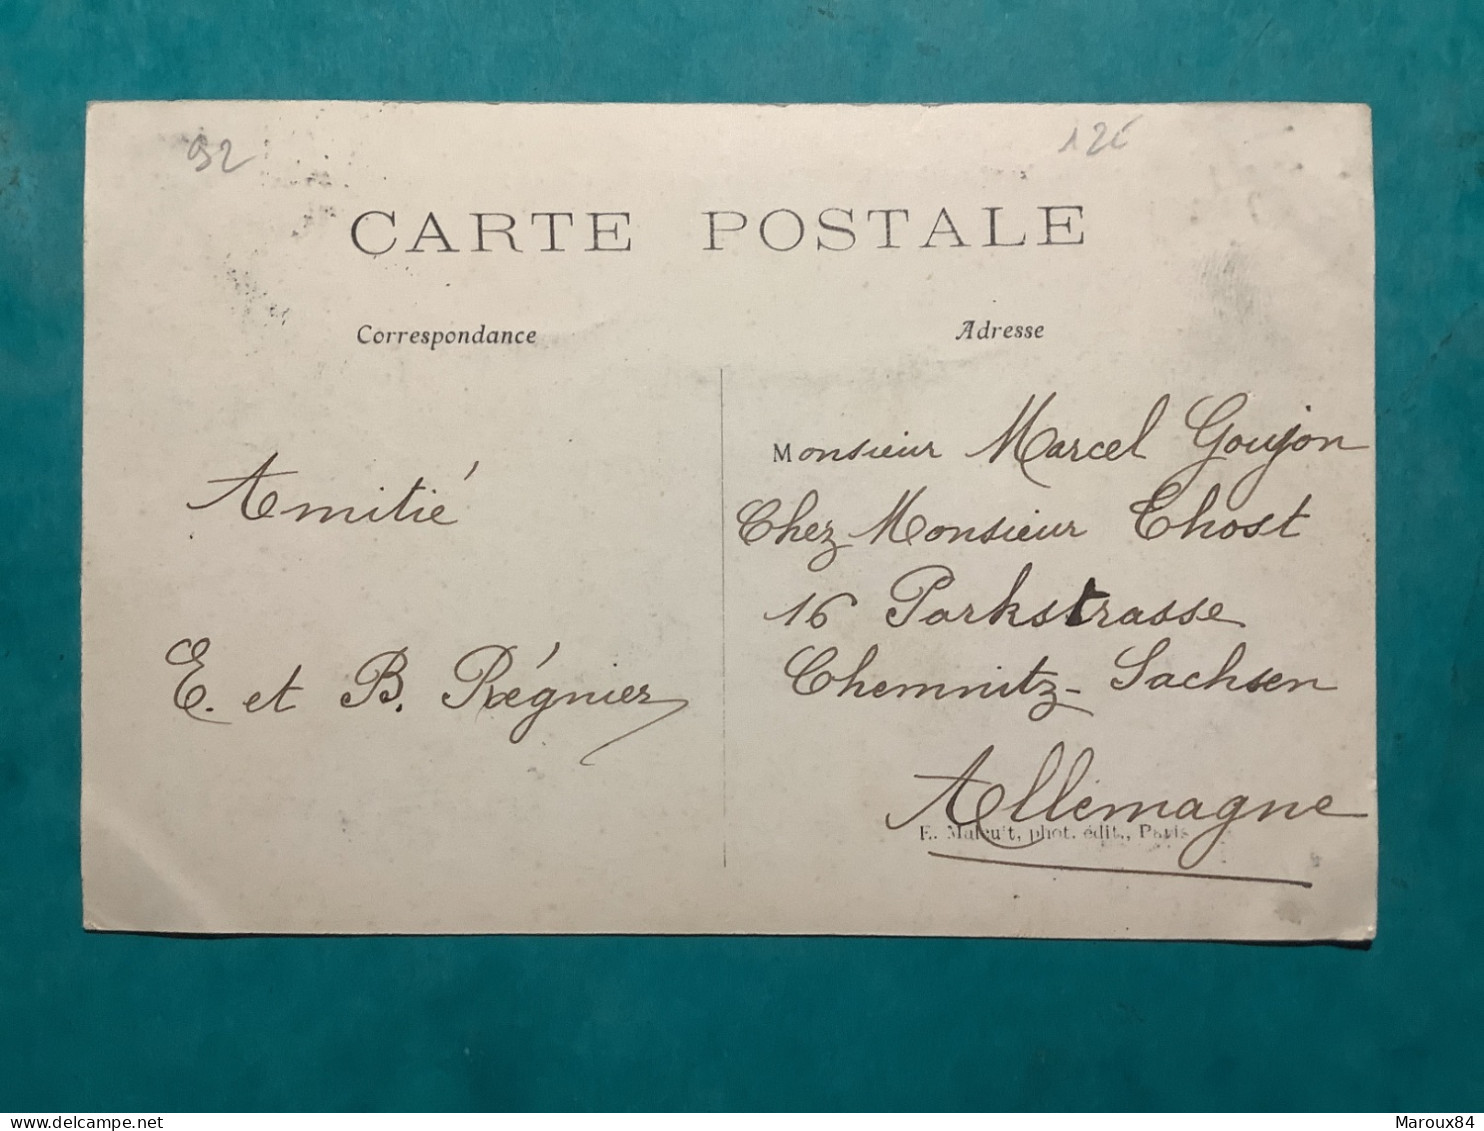 92
12€
CARTE POSTALE
Correspondance
Adresse
Amitié
E. et B. Régnier
Monsieur Marcel Goujon
Chez Monsieur Thost
16 Parkstrasse
Chemnitz - Sachsen
Allemagne
E. Malcuit, phot. édit., Paris
Maroux84